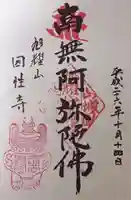 平成二六年十月十四日
南無阿弥陀佛
旭耀山
因佳寺